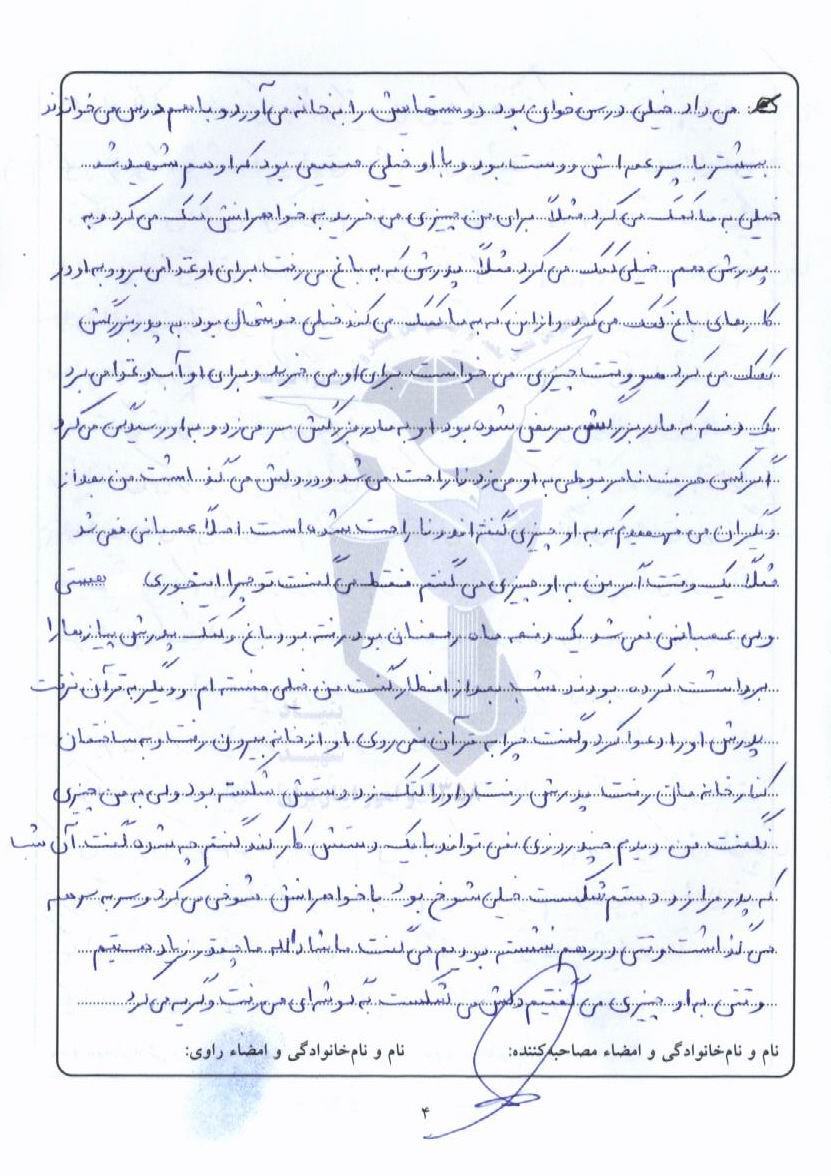 می داد خیلی درس خوان بود دوستهایش را به خانه می آورد و با هم درس می خواندند
بیشتر با پسر عمه اش دوست بود و با او خیلی صمیمی بود که او هم شهید شد
خیلی به ما کمک می کرد مثلاً برای من چیزی می خرید به خواهرانش کمک می کرد و به
پدرش هم خیلی کمک می کرد مثلاً پدرش که به باغ می رفت برای او غذا می برد و به او در
کارهای باغ کمک می کرد و از این که به ما کمک می کند خیلی خوشحال بود به پدربزرگش
کمک می کرد هر وقت چیزی می خواست برای او می خرید و برای او آب و غذا می برد
یک دفعه که مادربزرگش مریض شده بود او به مادربزرگش سر می زد و به او رسیدگی می کرد
اگر کسی حرفت نامربوطی به او می زد ناراحت می شد و در دلش می گذاشت من بعد از
دیگران می فهمیدم که به او چیزی گفته اند و ناراحت شده است اصلاً عصبانی نمی شد
مثلاً یک وقت اگر من به او چیزی می گفتم فقط می گفت تو چرا اینجوری هستی
ولی عصبانی نمی شد یک دفعه ماه رمضان بود رفته بود باغ و کمک پدرش پیازها را
برداشت کرده بودند شب بعد از افطار گفت من خیلی خسته ام و دیگر به قرآن نرفت
پدرش او را دعوا کرد و گفت چرا به قرآن نمی روی او از خانه بیرون رفت و به ساختمان
کنار خانه مان رفت پدرش رفت و او را کتک زد دستش شکسته بود ولی به من چیزی
نگفت من دیدم چند روزی نمی تواند با یک دستش کار کند گفتم چه شده گفت آن شب
که پدر مرا زد دستم شکست خیلی شوخ بود با خواهرانش شوخی می کرد و سر به سر همه
می گذاشت وقتی دور هم نشسته بودیم می گفت ماشاءالله ما چقدر زیاد هستیم
وقتی به او چیزی می گفتیم دلش می شکست به گوشه ای می رفت و گریه می کرد
نام و نام خانوادگی و امضاء مصاحبه کننده: نام و نام خانوادگی و امضاء راوی:
۴